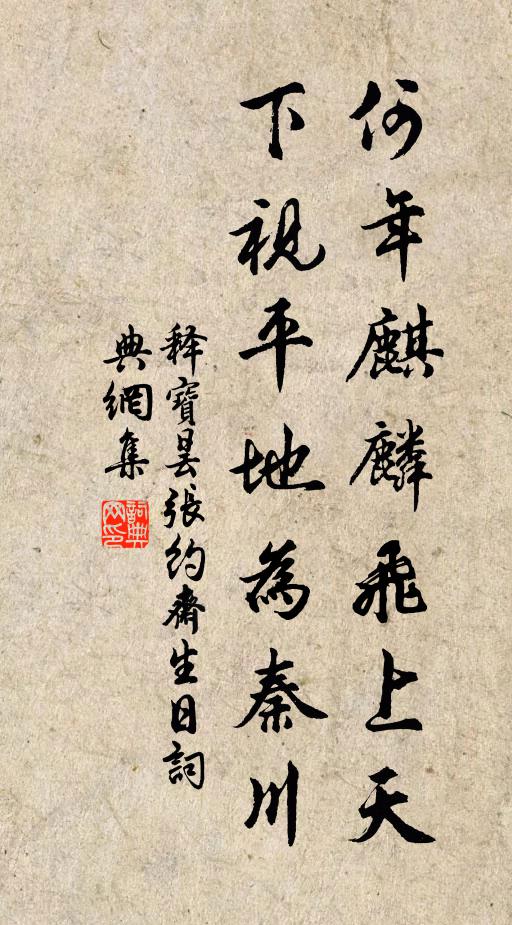 何年麒麟飛上天
下視平地為秦川
释寶曇張約齋生日詞
典網集
詞典
网印